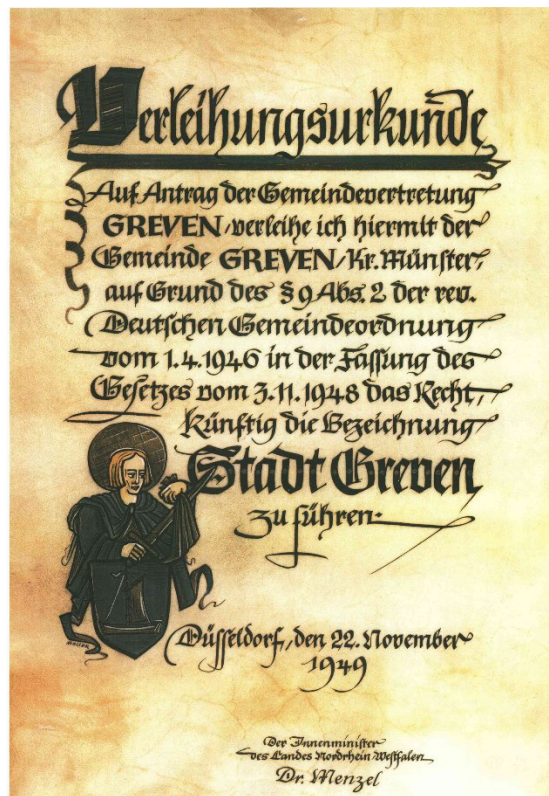 Verleihungsurkunde
Auf Antrag der Gemeindevertretung
GREVEN, verleihe ich hiermit der
Gemeinde GREVEN, Kr. Münster,
auf Grund des § 9 Abs. 2 der rev.
Deutschen Gemeindeordnung
vom 1.4.1946 in der Fassung des
Gesetzes vom 3.11.1948 das Recht,
künftig die Bezeichnung
Stadt Greven
zu führen.
Düsseldorf, den 22. November
1949
Der Innenminister
des Landes Nordrhein Westfalen
Dr. Menzel